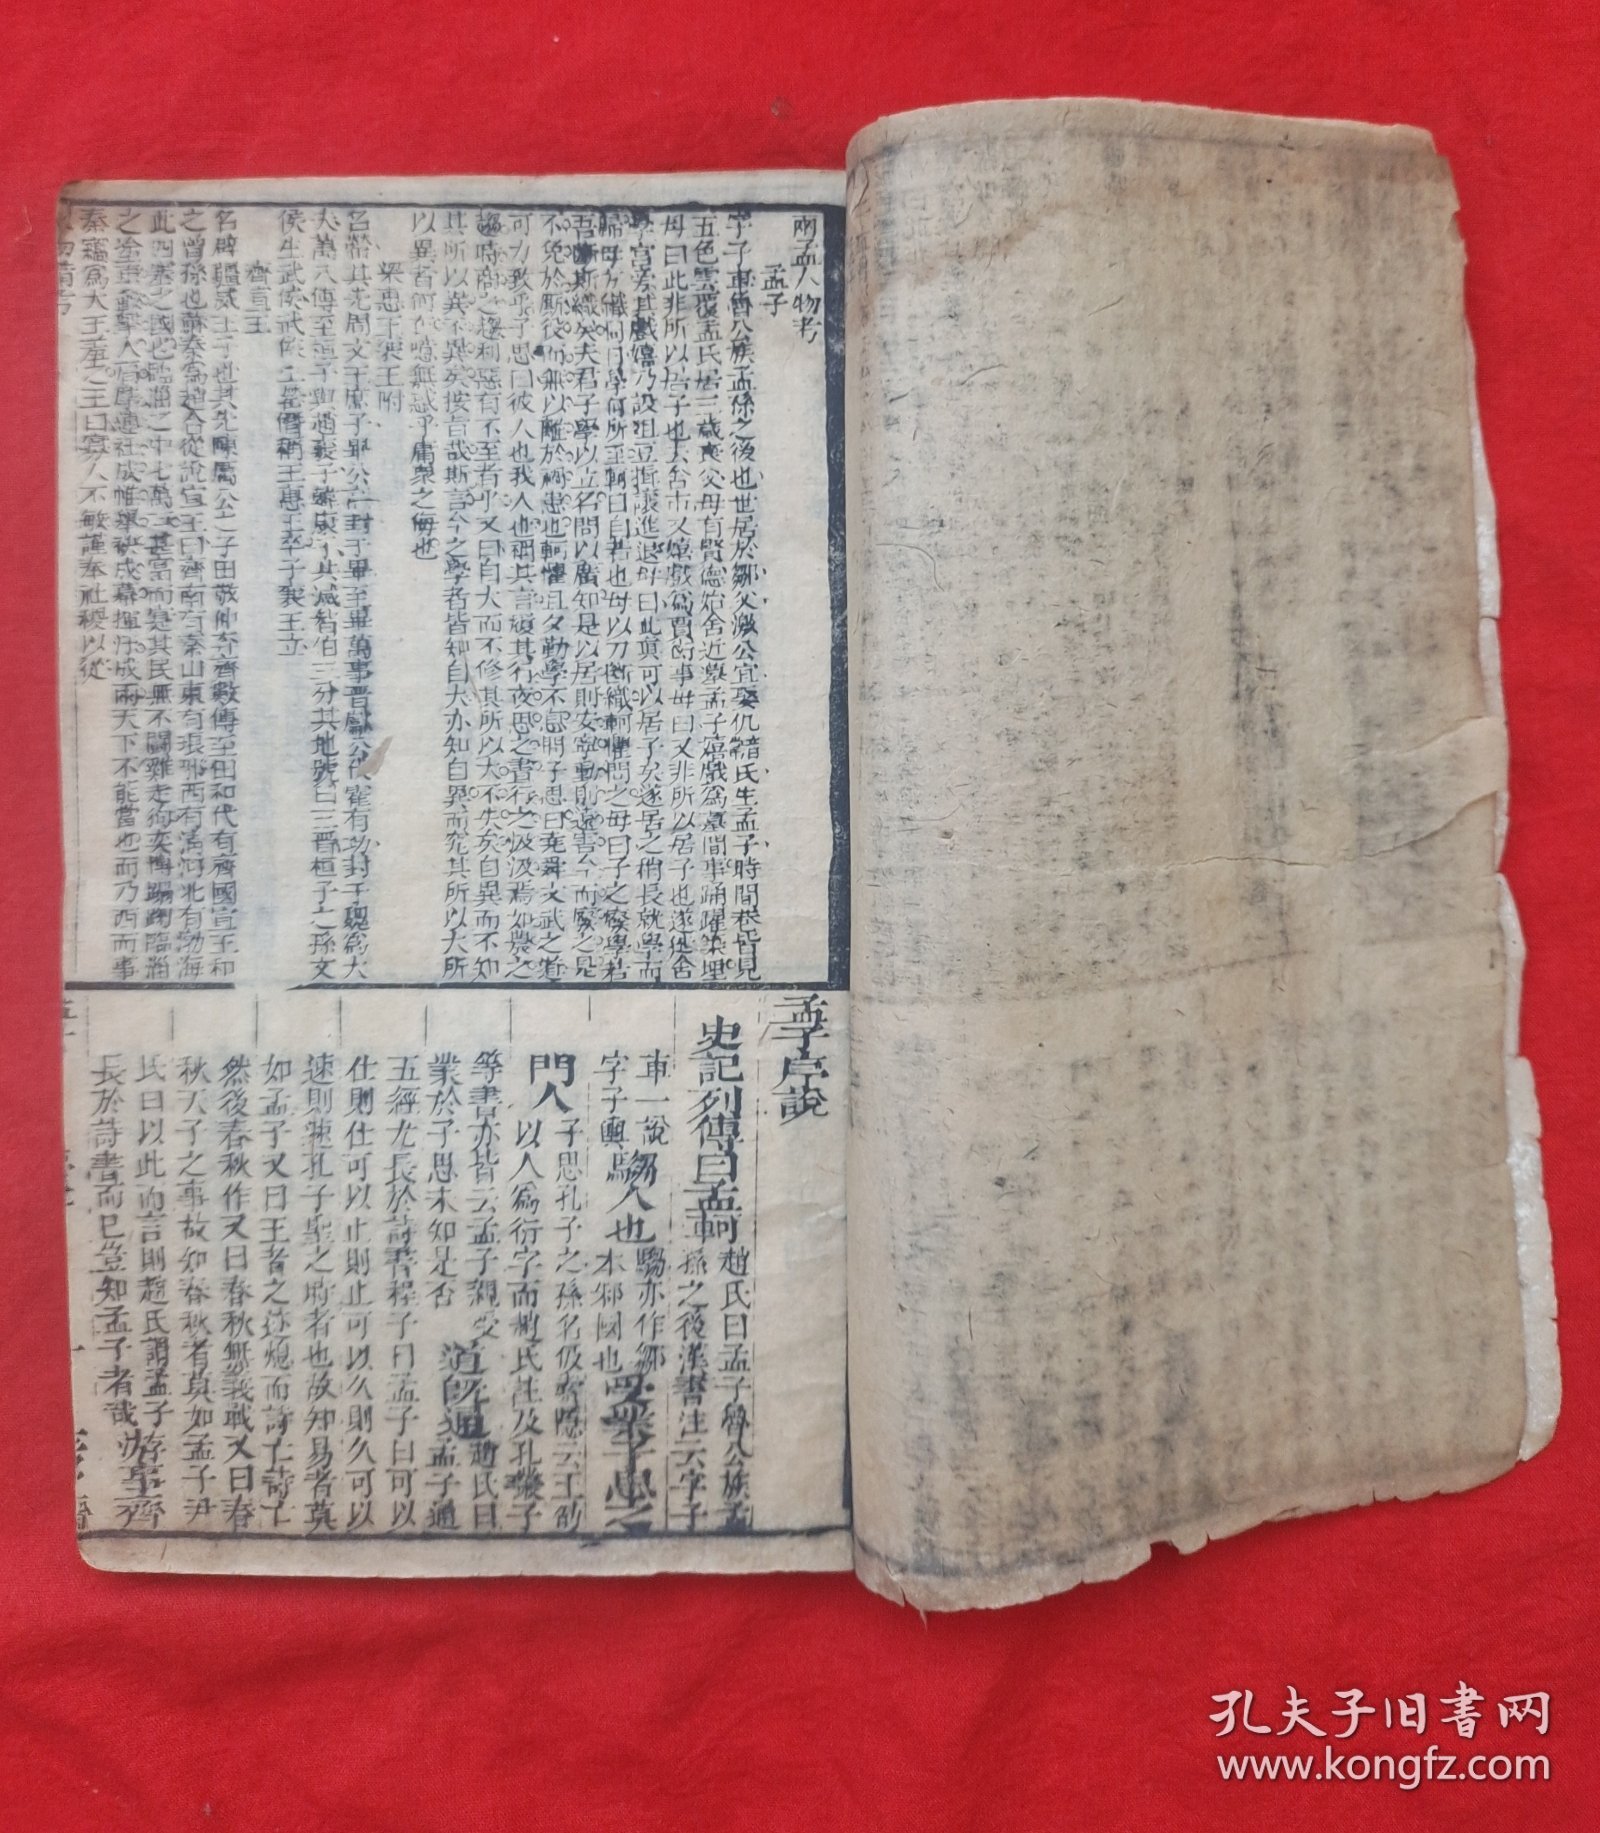 兩孟人物考
孟子
字子車魯公族孟孫之後也世居於鄒父激公宜娶仉氏生孟子時閭巷皆見
五色雲覆孟氏居三歲喪父母有賢德始舍近墓孟子嬉戲爲墓間事踊躍築埋
母曰此非所以居子也去舍市又嬉戲爲賈衒事母曰又非所以居子也遂徙舍
學宮旁其戲嬉乃設俎豆揖讓進退母曰此真可以居子矣遂居之稍長就學而
歸母方織問曰學何所至軻曰自若也母以刀斷織軻懼問之母曰子之廢學若
吾斷斯織矣夫君子學以立名問以廣知是以居則安寧動則遠害今而廢之是
不免於厮役而無以離於禍患也軻懼旦夕勤學不息問子思曰堯舜文武之道
可力致乎子思曰彼人也我人也稱其言履其行夜思之晝行之汲汲焉如農之
趨時商之趨利惡有不至者乎又曰自大而不修其所以大不大矣自異而不知
其所以異不異矣按旨哉斯言今之學者皆知自大亦知自異而究其所以大所
以異者何噫無惑乎庸衆之侮也
梁惠王襄王附
名罃其先周文王庶子畢公高封于畢至畢萬事晉獻公伐霍有功封于魏爲大
夫萬八傳至桓子與趙襄子韓康子共滅智伯三分其地號曰三晉桓子之孫文
侯生武侯武侯生罃僭稱王惠王卒子襄王立
齊宣王
名辟疆威王子也其先陳厲公之子田敬仲奔齊數傳至田和代有齊國宣王和
之曾孫也蘇秦爲趙合從說宣王曰齊南有泰山東有琅琊西有清河北有渤海
此四塞之國也臨淄之中七萬戶甚富而實其民無不鬪雞走狗六博蹋踘臨淄
之途車轂擊人肩摩連衽成帷舉袂成幕揮汗成雨天下不能當也而乃西面事
秦竊爲大王羞之王曰寡人不敏謹奉社稷以從
孟子序說
史記列傳曰孟軻趙氏曰孟子魯公族孟
孫之後漢書注云字子
車一說
字子輿騶人也騶亦作鄒
本邾國也受業子思之
門人子思孔子之孫名伋索隱云王劭
以人爲衍字而趙氏註及孔叢子
等書亦皆云孟子親受
業於子思未知是否道旣通趙氏曰
孟子通
五經尤長於詩書程子曰孟子曰可以
仕則仕可以止則止可以久則久可以
速則速孔子聖之時者也故知易者莫
如孟子又曰王者之迹熄而詩亡詩亡
然後春秋作又曰春秋無義戰又曰春
秋天子之事故知春秋者莫如孟子尹
氏曰以此而言則趙氏謂孟子
長於詩書而已豈知孟子者哉游事齊
孔夫子旧书网
www.kongfz.com